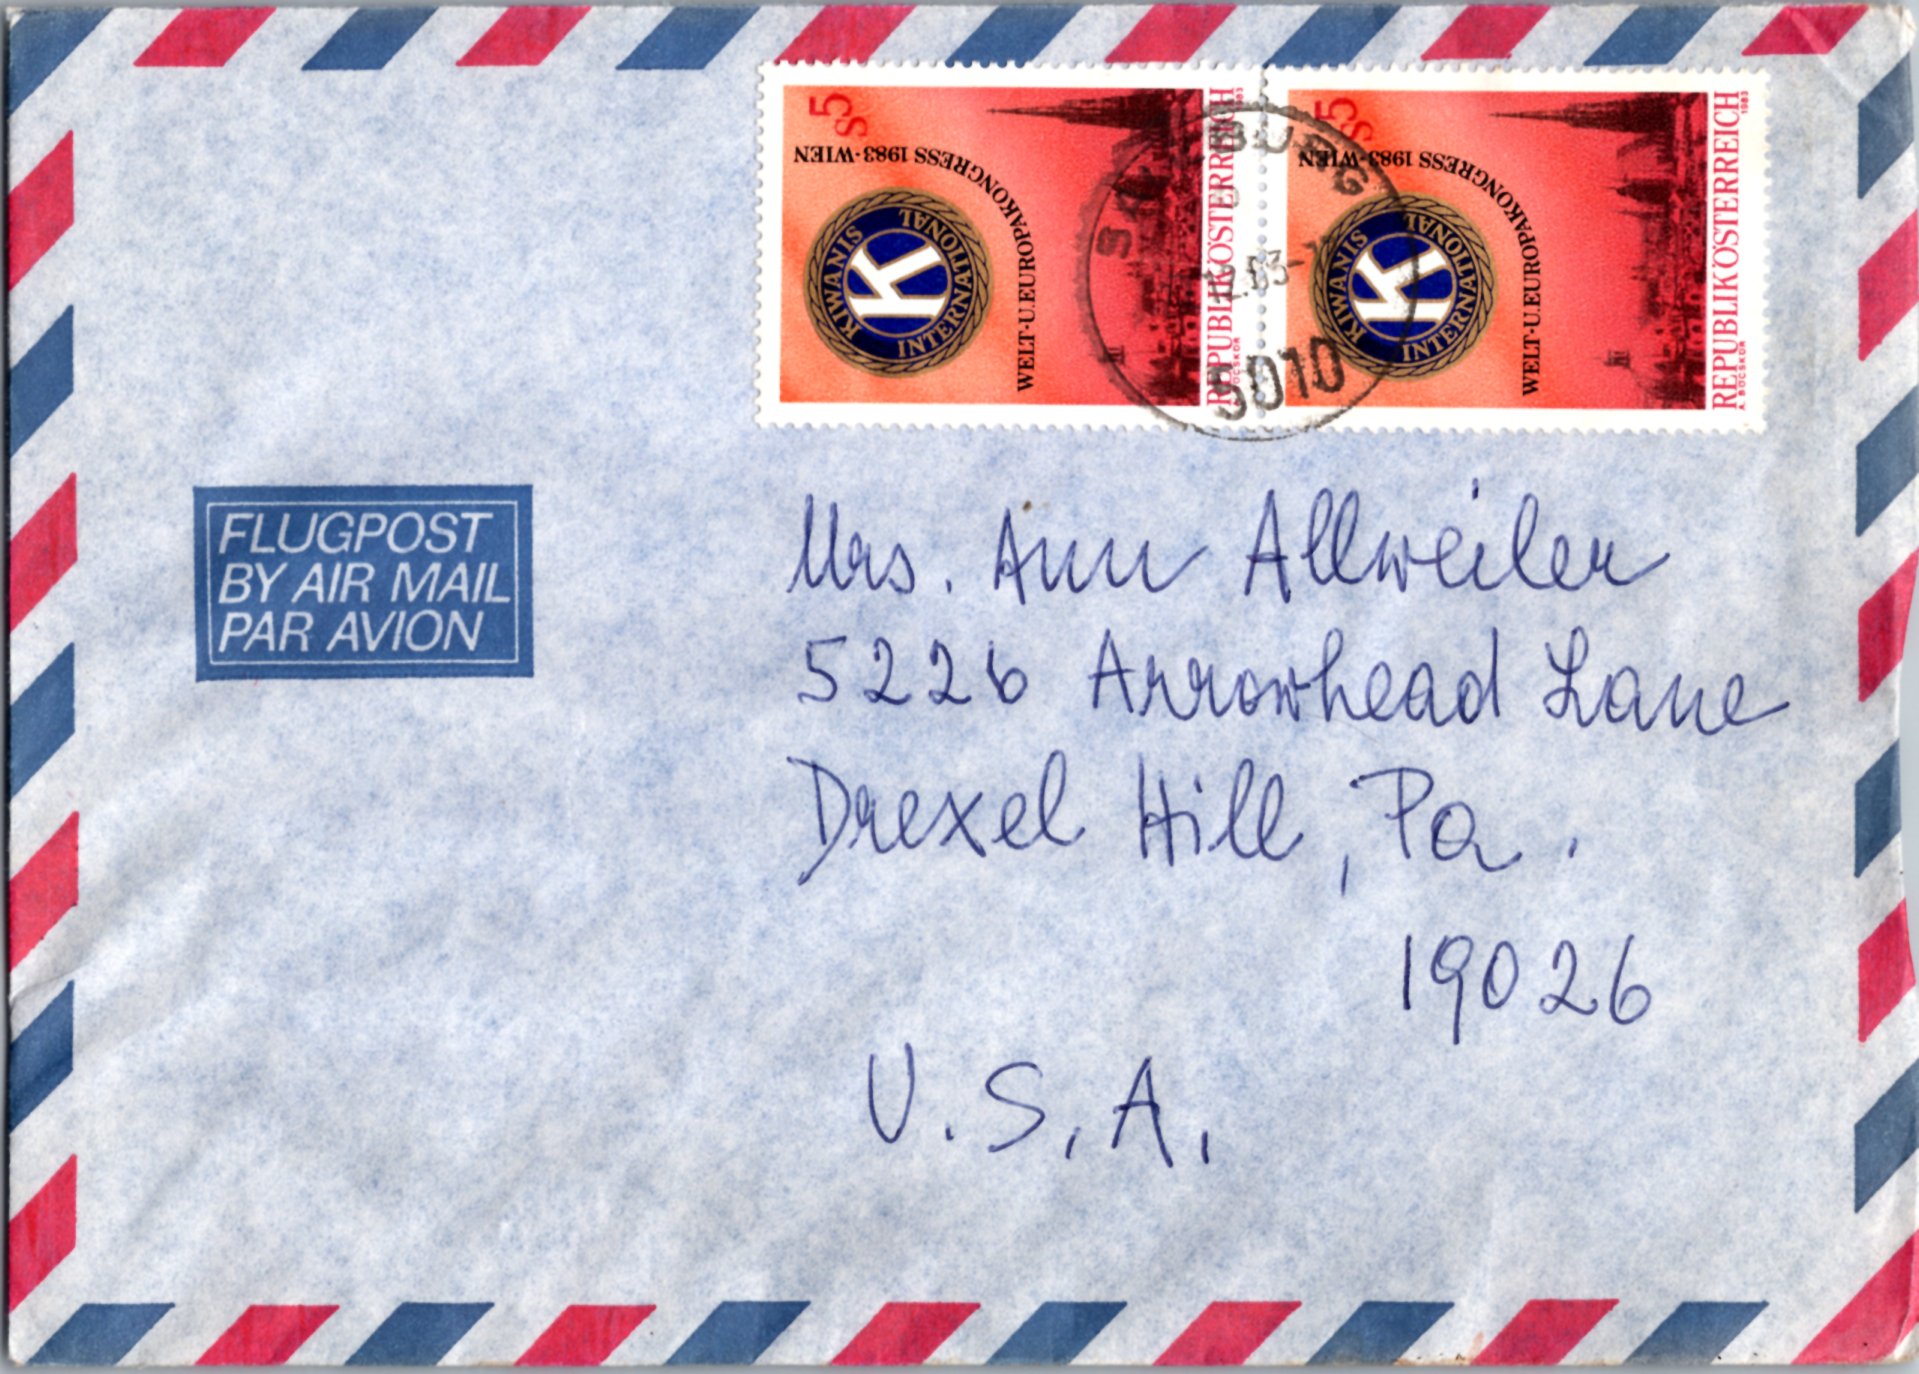 S5
WELT-U.EUROPAKONGRESS 1983-WIEN
KIWANIS
INTERNATIONAL
K
REPUBLIK ÖSTERREICH
1983
S5
WELT-U.EUROPAKONGRESS 1983-WIEN
KIWANIS
INTERNATIONAL
K
REPUBLIK ÖSTERREICH
1983
A. BÖCSKÖR
5010
FLUGPOST
BY AIR MAIL
PAR AVION
Mrs. Ann Allweiler
5226 Arrowhead Lane
Drexel Hill, Pa.
19026
U.S.A.